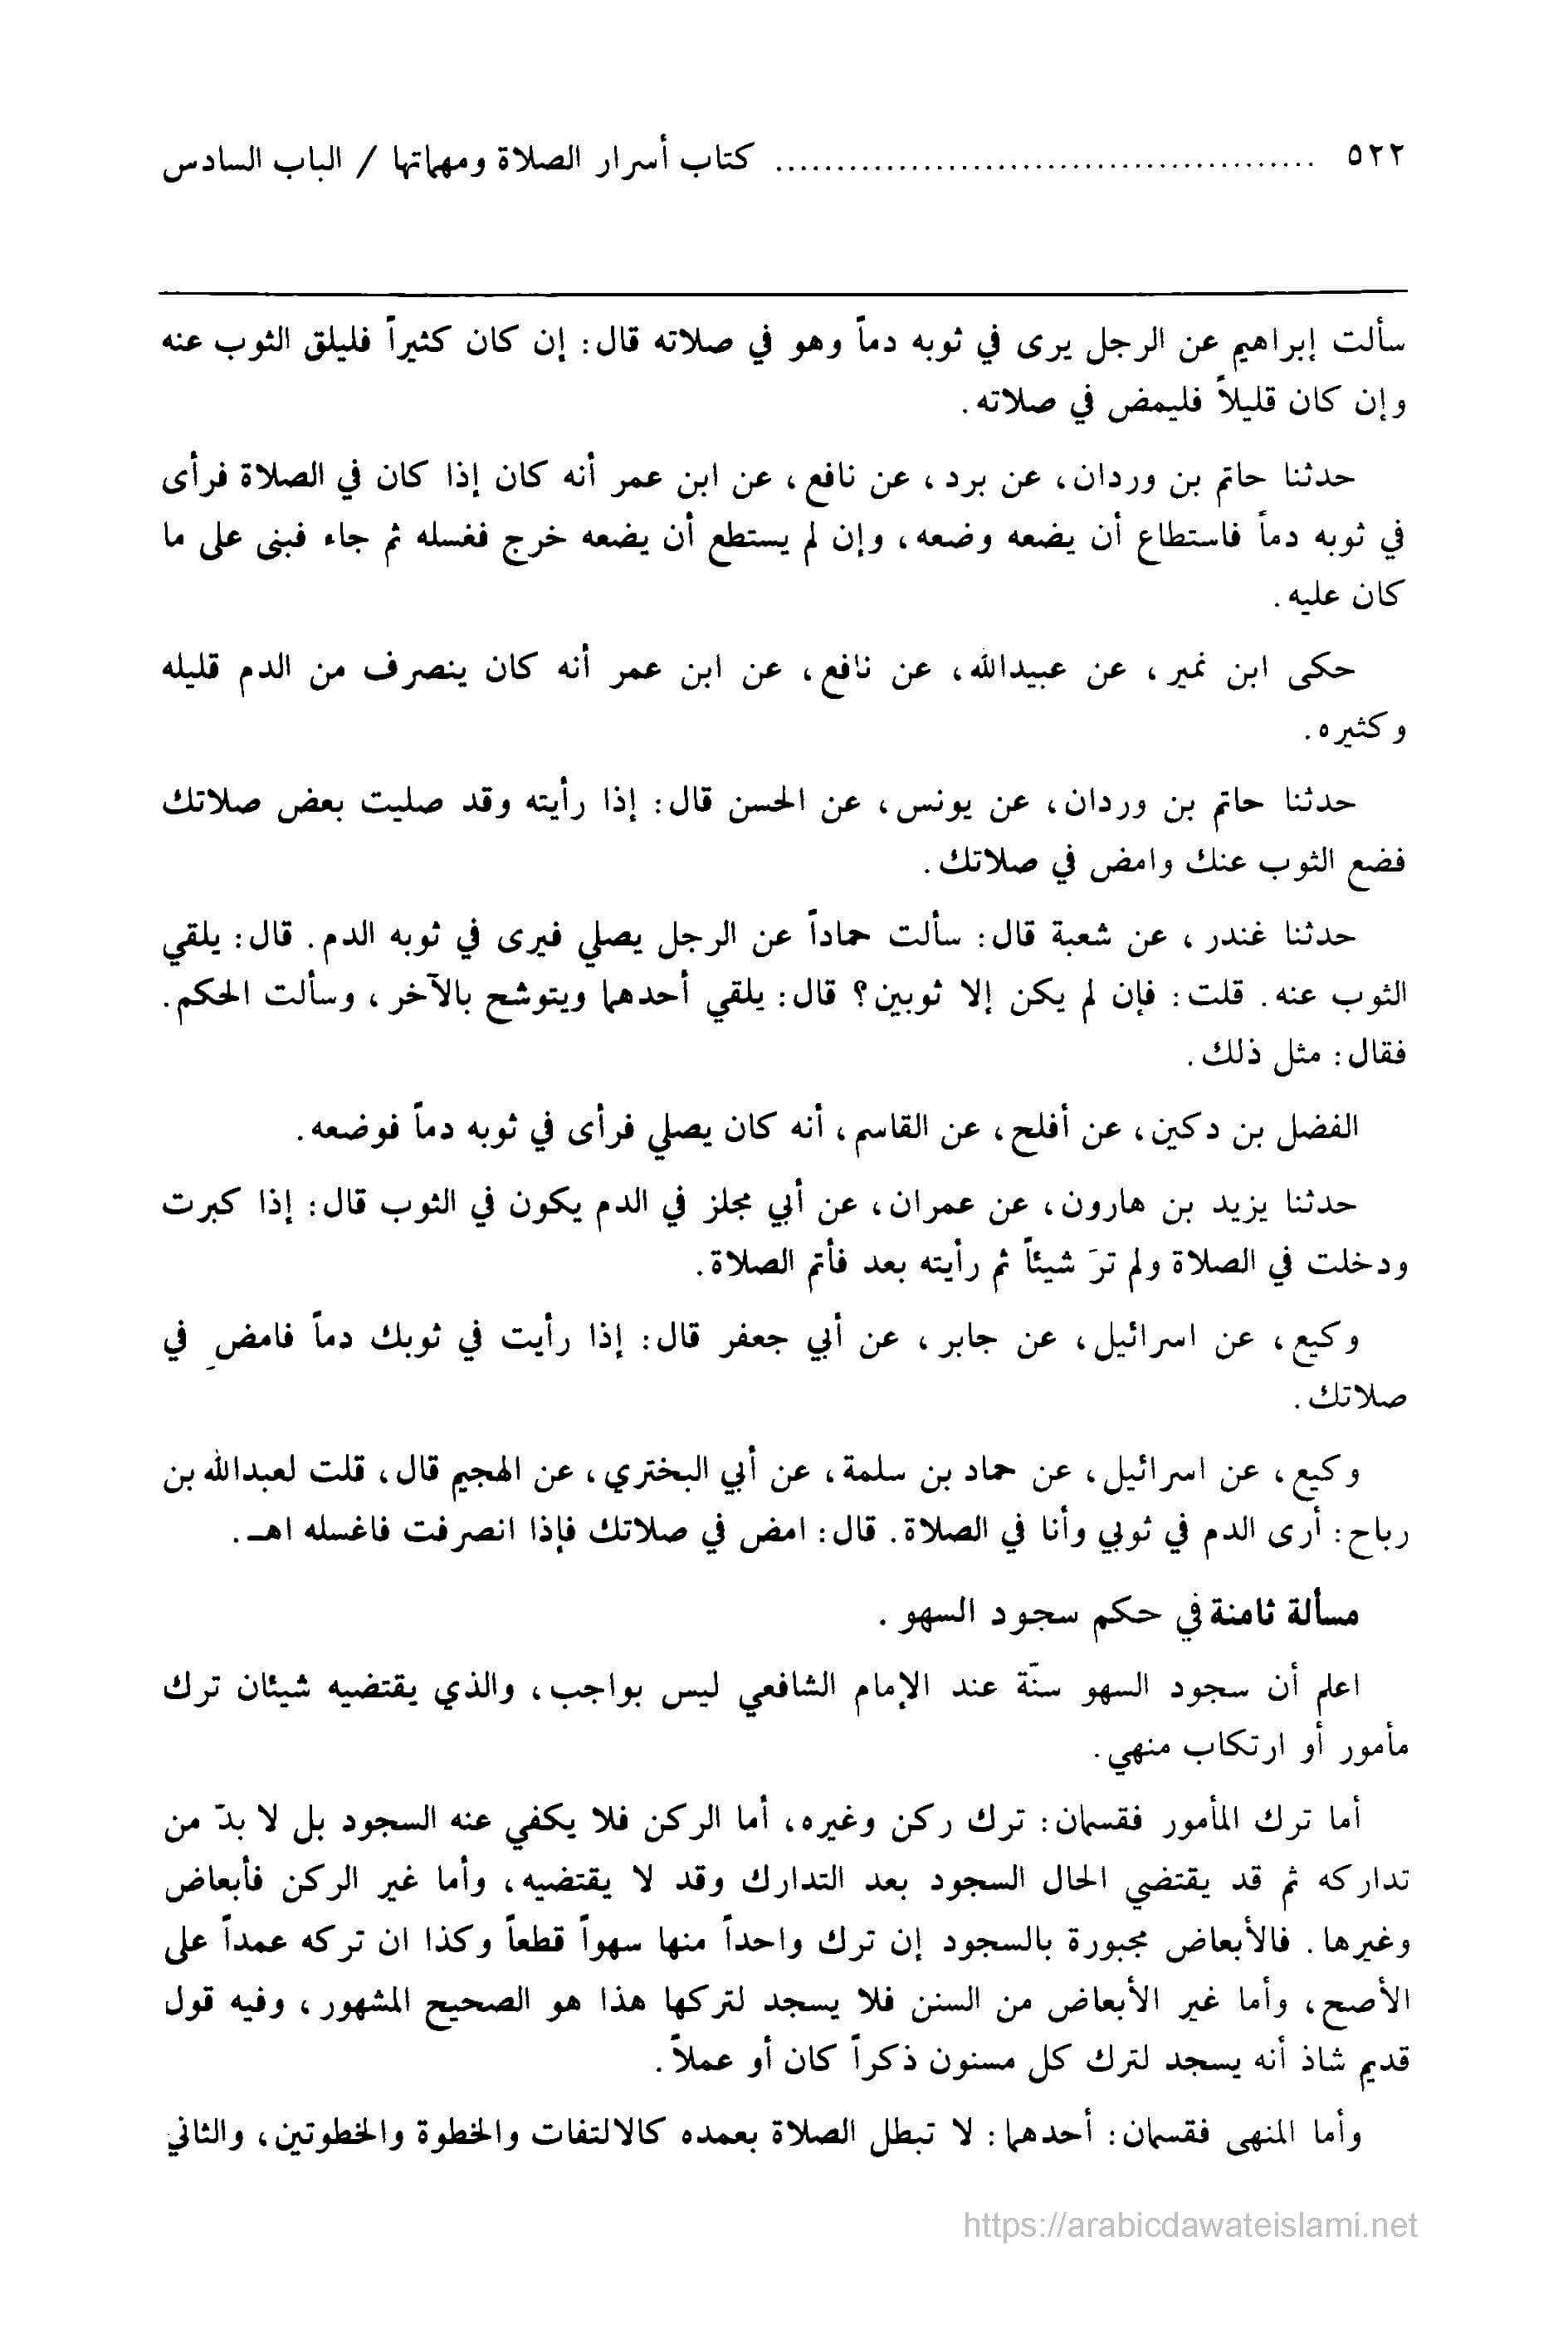 ٥٢٢ ............................................ كتاب أسرار الصلاة ومهماتها / الباب السادس
سألت إبراهيم عن الرجل يرى في ثوبه دماً وهو في صلاته قال: إن كان كثيراً فليلق الثوب عنه
وإن كان قليلاً فليمض في صلاته.
حدثنا حاتم بن وردان، عن برد، عن نافع، عن ابن عمر أنه كان إذا كان في الصلاة فرأى
في ثوبه دماً فاستطاع أن يضعه وضعه، وإن لم يستطع أن يضعه خرج فغسله ثم جاء فبنى على ما
كان عليه.
حكى ابن نمير، عن عبيدالله، عن نافع، عن ابن عمر أنه كان ينصرف من الدم قليله
وكثيره.
حدثنا حاتم بن وردان، عن يونس، عن الحسن قال: إذا رأيته وقد صليت بعض صلاتك
فضع الثوب عنك وامض في صلاتك.
حدثنا غندر، عن شعبة قال: سألت حماداً عن الرجل يصلي فيرى في ثوبه الدم. قال: يلقي
الثوب عنه. قلت: فإن لم يكن إلا ثوبين؟ قال: يلقي أحدهما ويتوشح بالآخر، وسألت الحكم.
فقال: مثل ذلك.
الفضل بن دكين، عن أفلح، عن القاسم، أنه كان يصلي فرأى في ثوبه دماً فوضعه.
حدثنا يزيد بن هارون، عن عمران، عن أبي مجلز في الدم يكون في الثوب قال: إذا كبرت
ودخلت في الصلاة ولم ترَ شيئاً ثم رأيته بعد فأتم الصلاة.
وكيع، عن اسرائيل، عن جابر، عن أبي جعفر قال: إذا رأيت في ثوبك دماً فامضِ في
صلاتك.
وكيع، عن اسرائيل، عن حماد بن سلمة، عن أبي البختري، عن الهجيم قال، قلت لعبدالله بن
رباح: أرى الدم في ثوبي وأنا في الصلاة. قال: امض في صلاتك فإذا انصرفت فاغسله اهـ.
مسألة ثامنة في حكم سجود السهو.
اعلم أن سجود السهو سنّة عند الإمام الشافعي ليس بواجب، والذي يقتضيه شيئان ترك
مأمور أو ارتكاب منهي.
أما ترك المأمور فقسمان: ترك ركن وغيره، أما الركن فلا يكفي عنه السجود بل لا بدّ من
تداركه ثم قد يقتضي الحال السجود بعد التدارك وقد لا يقتضيه، وأما غير الركن فأبعاض
وغيرها. فالأبعاض مجبورة بالسجود إن ترك واحداً منها سهواً قطعاً وكذا ان تركه عمداً على
الأصح، وأما غير الأبعاض من السنن فلا يسجد لتركها هذا هو الصحيح المشهور، وفيه قول
قديم شاذ أنه يسجد لترك كل مسنون ذكراً كان أو عملاً.
وأما المنهى فقسمان: أحدهما: لا تبطل الصلاة بعمده كالالتفات والخطوة والخطوتين، والثاني
https://arabicdawateislami.net